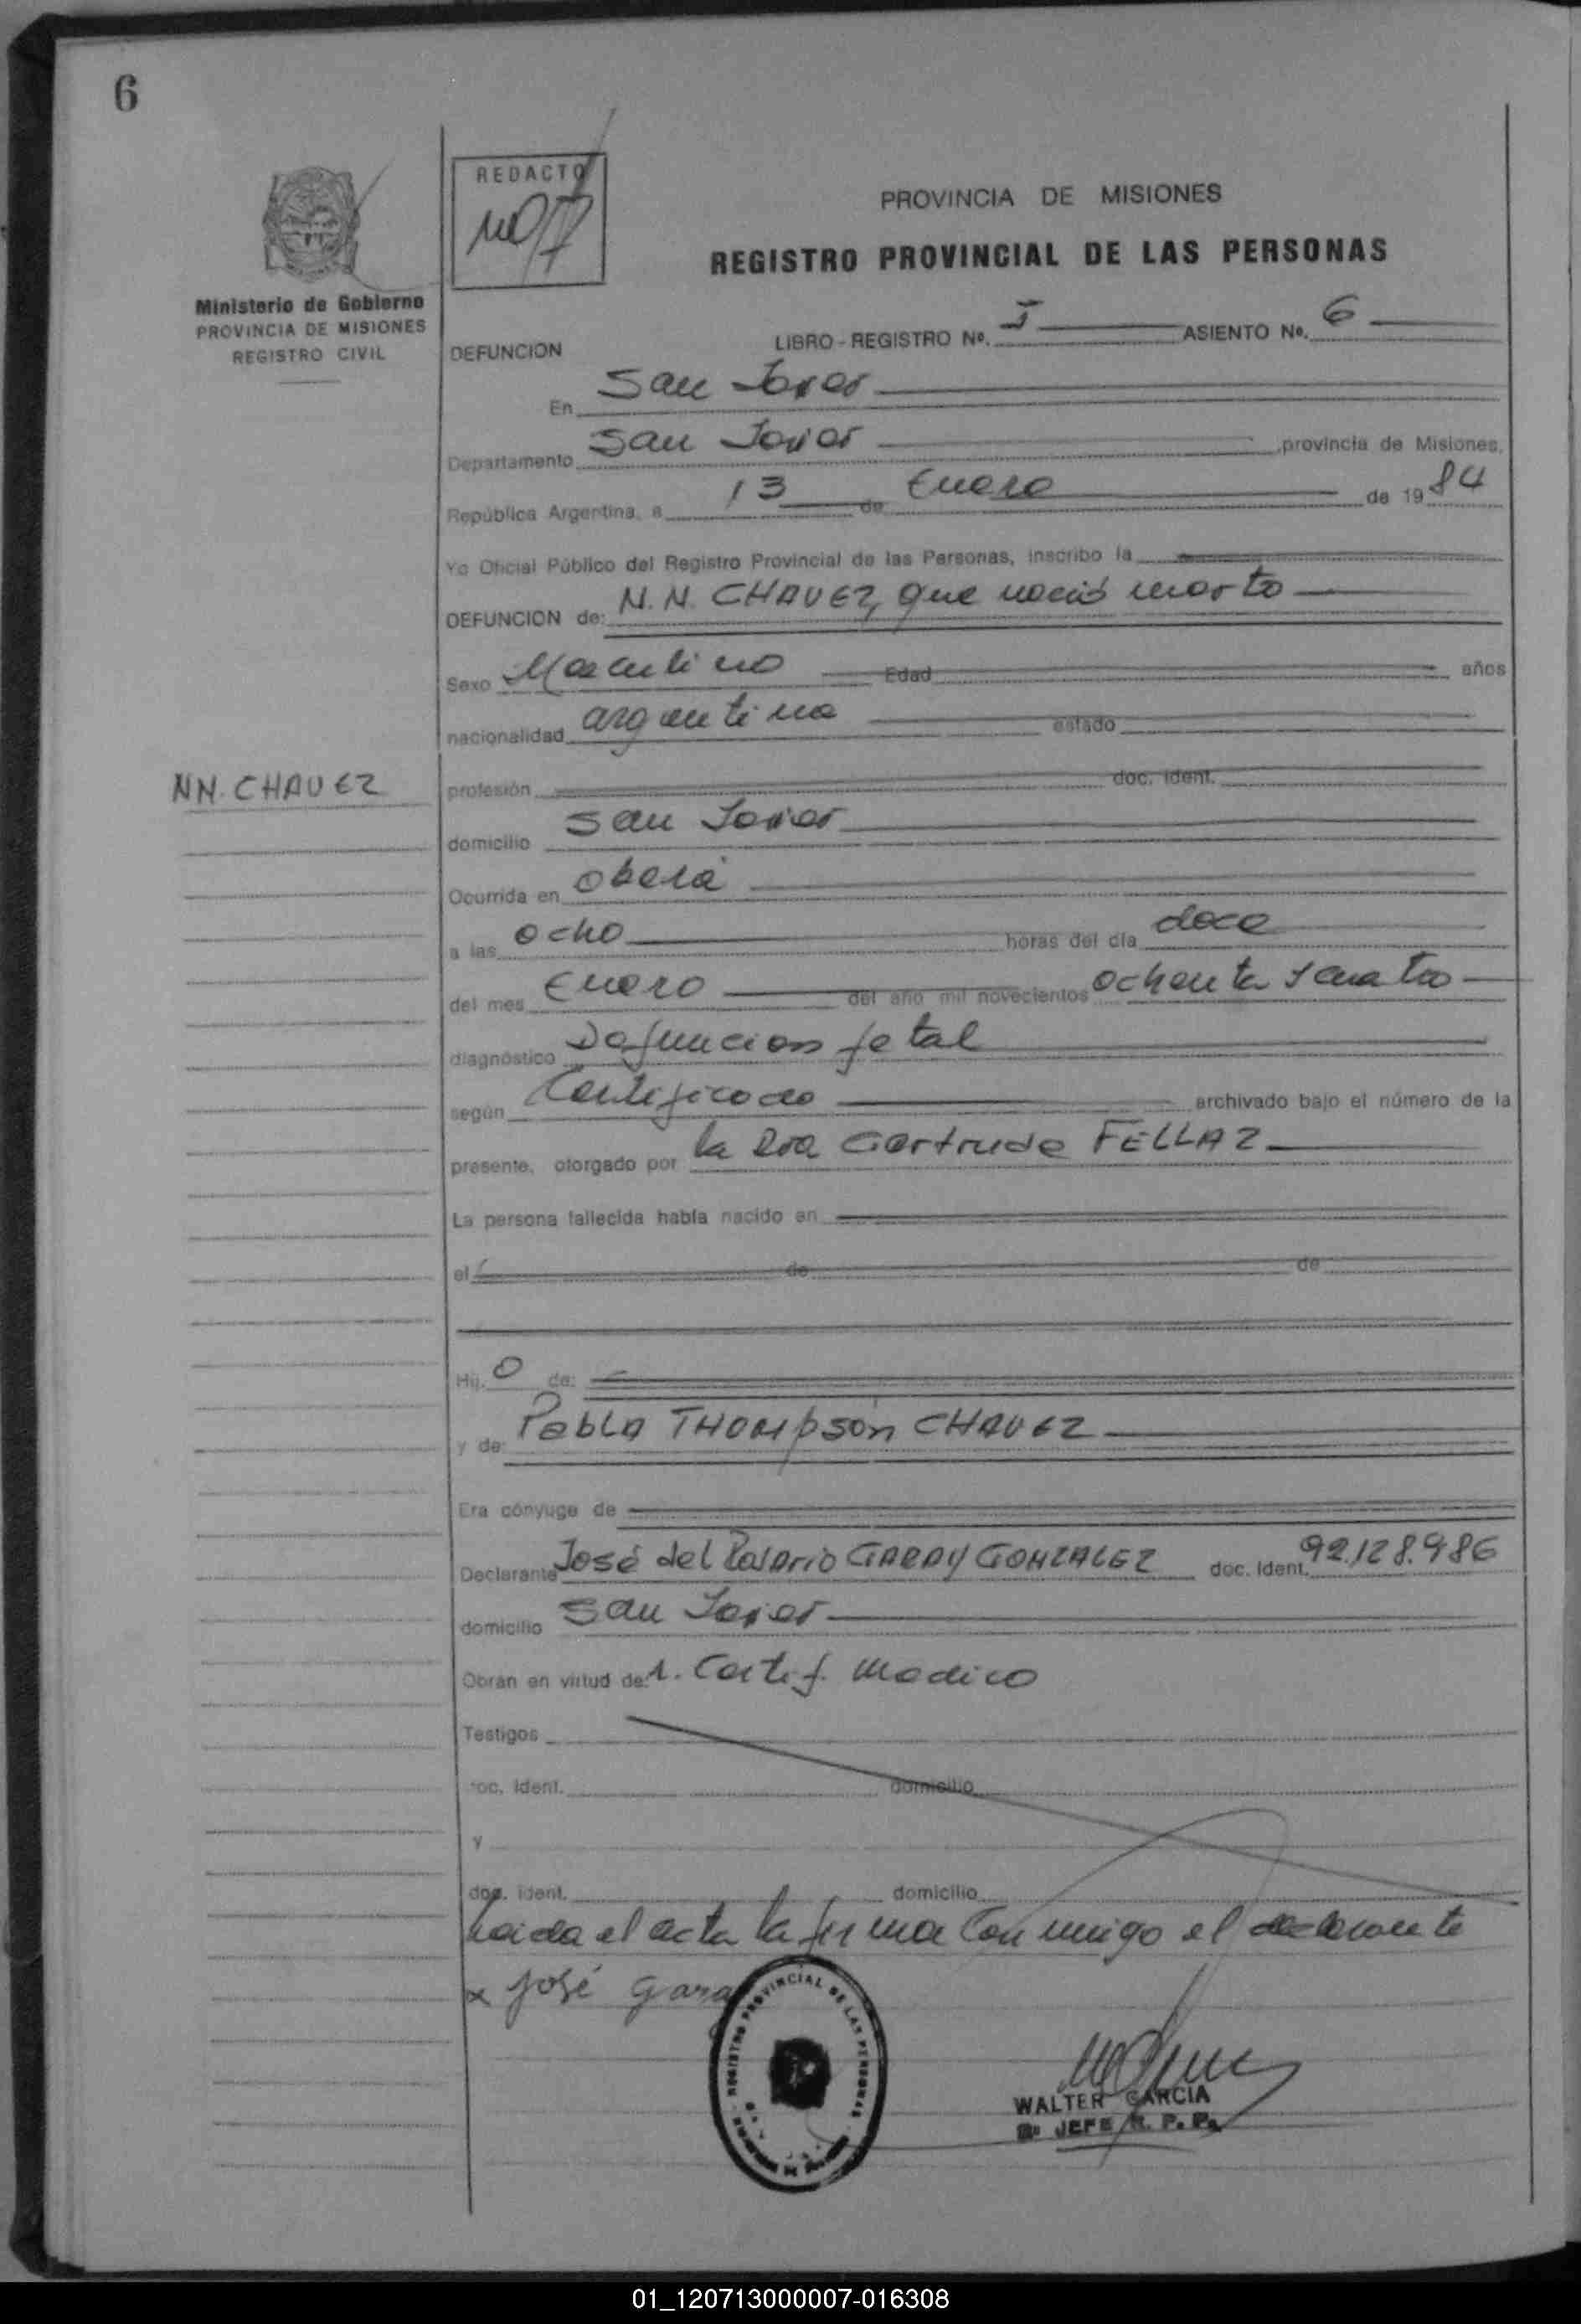 6
REDACTO
PROVINCIA DE MISIONES
REGISTRO PROVINCIAL DE LAS PERSONAS
Ministerio de Gobierno
PROVINCIA DE MISIONES
REGISTRO CIVIL
DEFUNCION LIBRO - REGISTRO No. I ASIENTO No. 6
En San Javier
Departamento San Javier provincia de Misiones,
República Argentina, a 13 de Enero de 1984
Yo Oficial Público del Registro Provincial de las Personas, inscribo la
DEFUNCION de: N.N. CHAVEZ, que nació muerto
Sexo Masculino Edad años
nacionalidad argentina estado
NN. CHAVEZ
profesión doc. ident.
domicilio San Javier
Ocurrida en Oberá
a las ocho horas del día doce
del mes Enero del año mil novecientos ochenta y cuatro
diagnóstico Defuncion fetal
según Certificado archivado bajo el número de la
presente, otorgado por la Dra Gertrude FELLAZ
La persona fallecida había nacido en
el de de
Hij. o de:
y de: Pabla THOMPSON CHAVEZ
Era cónyuge de
Declarante José del Rosario GARAY GONZALEZ doc. Ident. 92.128.986
domicilio San Javier
Obran en virtud de: 1. Certif. Medico
Testigos
doc. ident. domicilio
y
doc. ident. domicilio
Leida el acta la firma conmigo el declarante
x José Garay
REGISTRO PROVINCIAL DE LAS PERSONAS
WALTER GARCIA
JEFE R. P. P.
01_120713000007-016308